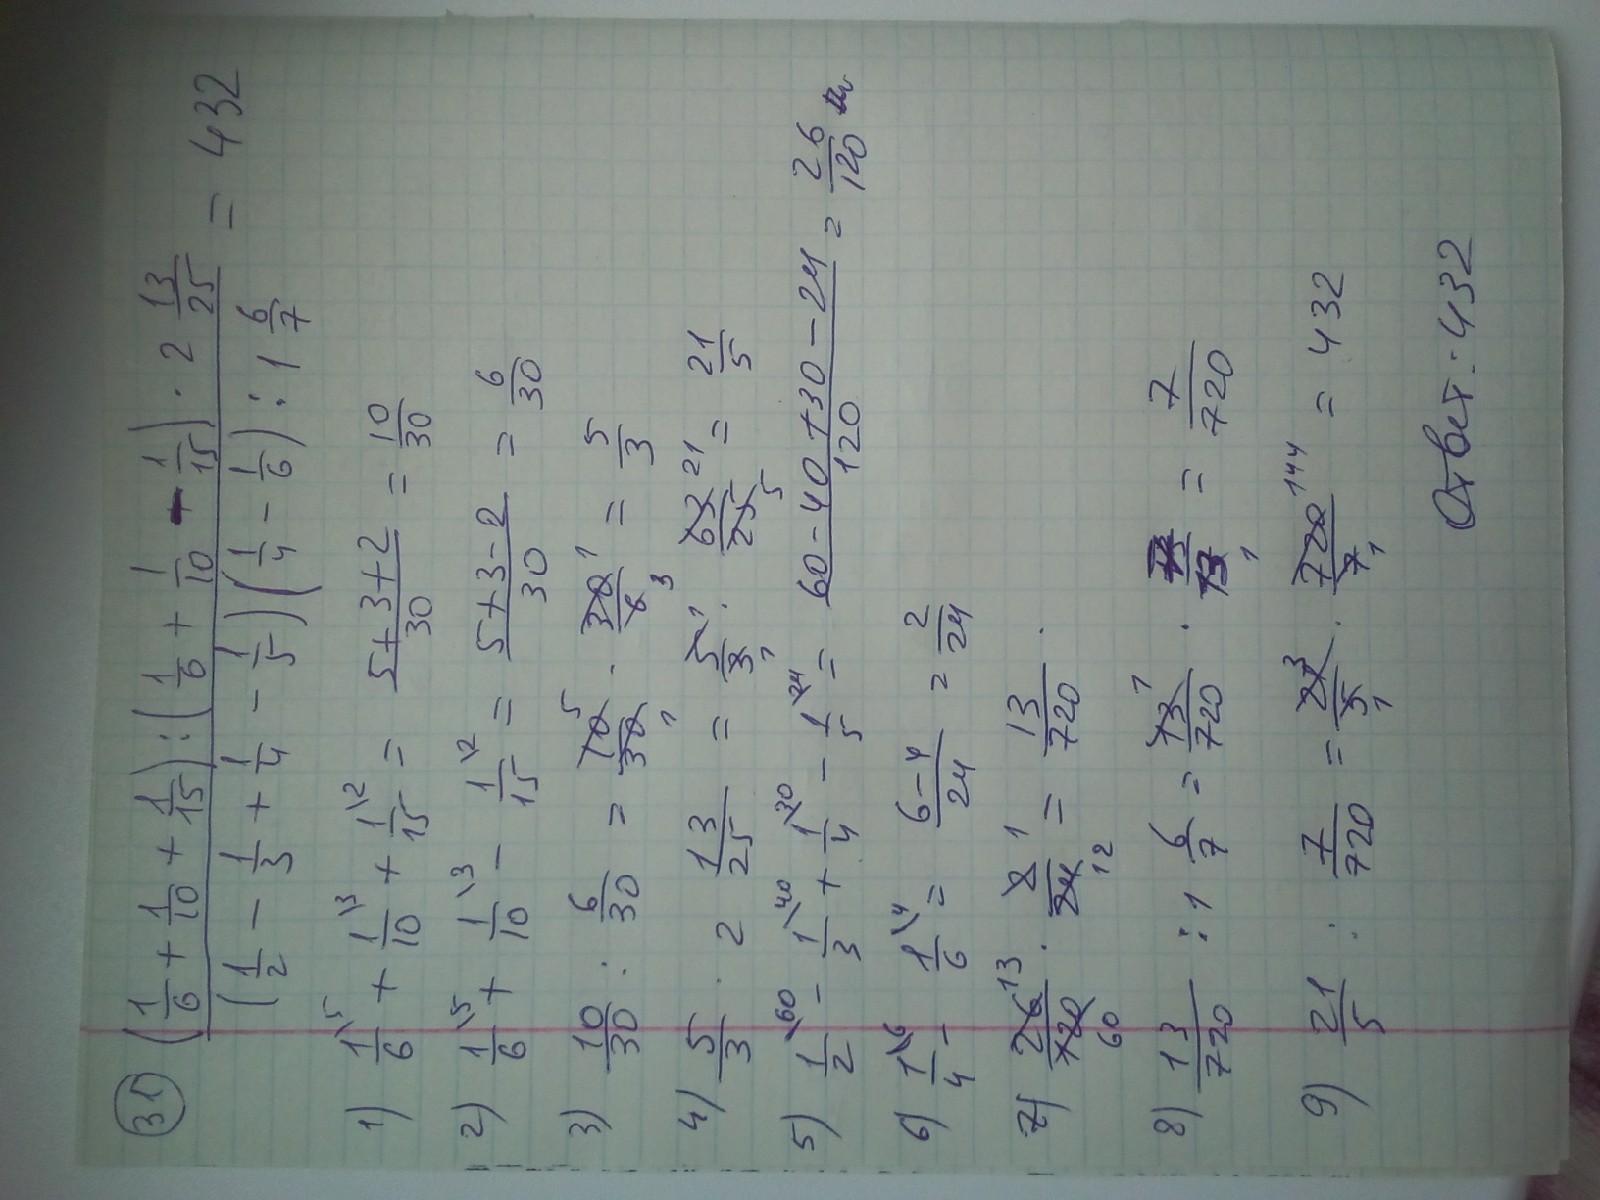 31 (1/6 + 1/10 + 1/15) : (1/6 + 1/10 - 1/15) · 2 13/25
(1/2 - 1/3 + 1/4 - 1/5)(1/4 - 1/6) : 1 6/7 = 432
1) 1\5/6 + 1\3/10 + 1\2/15 = 5+3+2/30 = 10/30
2) 1\5/6 + 1\3/10 - 1\2/15 = 5+3-2/30 = 6/30
3) 10/30 : 6/30 = 10 5/30 1 · 30 1/6 3 = 5/3
4) 5/3 · 2 13/25 = 5 1/3 1 · 63 21/25 5 = 21/5
5) 1\60/2 - 1\40/3 + 1\30/4 - 1\24/5 = 60-40+30-24/120 = 26/120
6) 1\6/4 - 1\4/6 = 6-4/24 = 2/24
7) 26 13/120 60 · 2 1/24 12 = 13/720
8) 13/720 : 1 6/7 = 13 1/720 · 7/13 1 = 7/720
9) 21/5 : 7/720 = 21 3/5 1 · 720 144/7 1 = 432
Ответ: 432